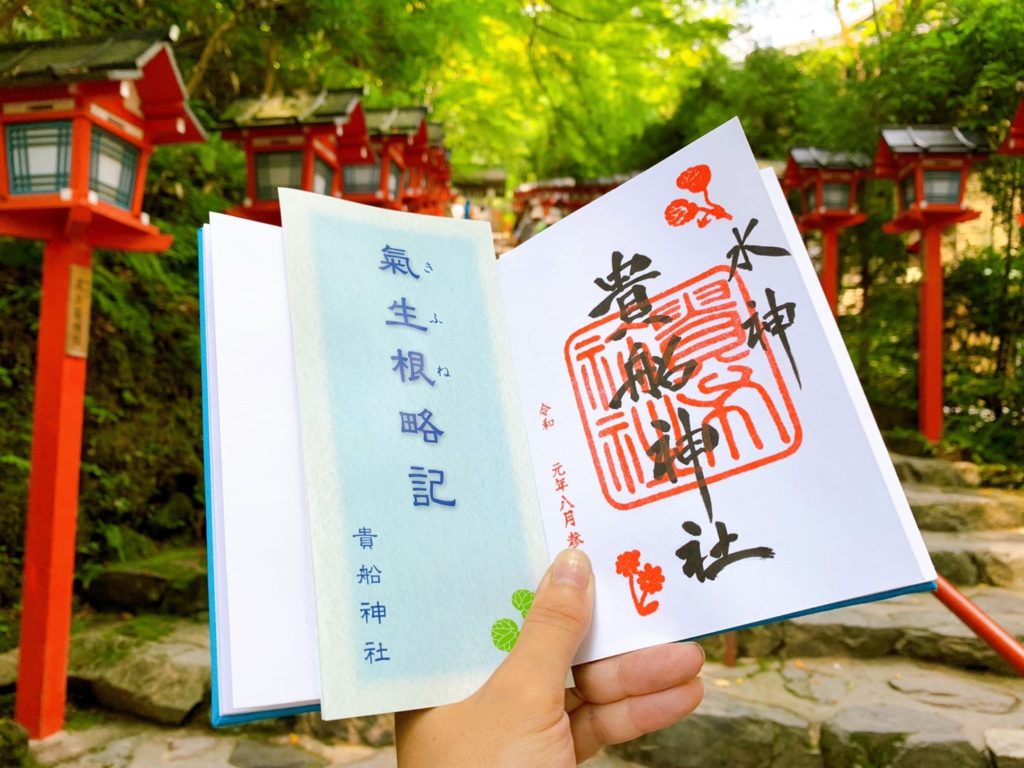 氣生根略記
きふね
貴船神社
水神
貴船神社
令和 元年八月参